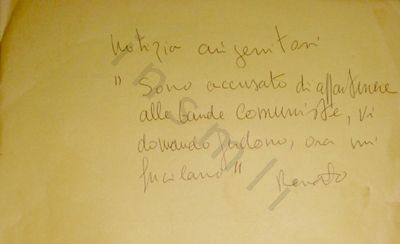 notizia ai genitori
"Sono accusato di appartenere
alle bande comuniste, vi
domando perdono, ora mi
fucilano"
Renato
insmli